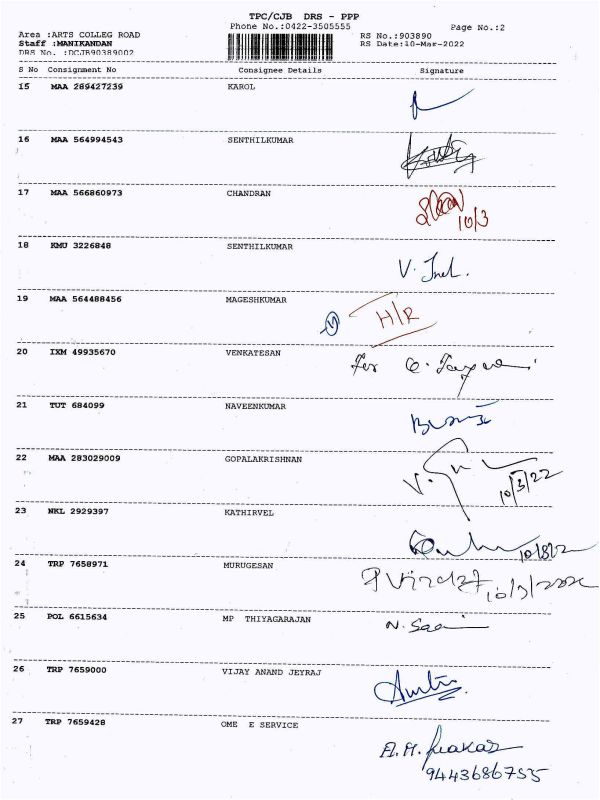 TPC/CJB DRS - PPP
Phone No.:0422-3505555
Page No.:2
Area :ARTS COLLEG ROAD
RS No.:903890
Staff :MANIKANDAN
RS Date:10-Mar-2022
DRS No. :DCJB90389002
S No Consignment No Consignee Details Signature
15 MAA 289427239 KAROL
16 MAA 564994543 SENTHILKUMAR
17 MAA 566860973 CHANDRAN
10/3
18 KMU 3226848 SENTHILKUMAR
V.
19 MAA 564488456 MAGESHKUMAR
H/R
20 IXM 49935670 VENKATESAN
For
21 TUT 684099 NAVEENKUMAR
22 MAA 283029009 GOPALAKRISHNAN
V.
10/3/22
23 NKL 2929397 KATHIRVEL
24 TRP 7658971 MURUGESAN
25 POL 6615634 MP THIYAGARAJAN
N.
26 TRP 7659000 VIJAY ANAND JEYRAJ
27 TRP 7659428 OME E SERVICE
A.M.
9443686755